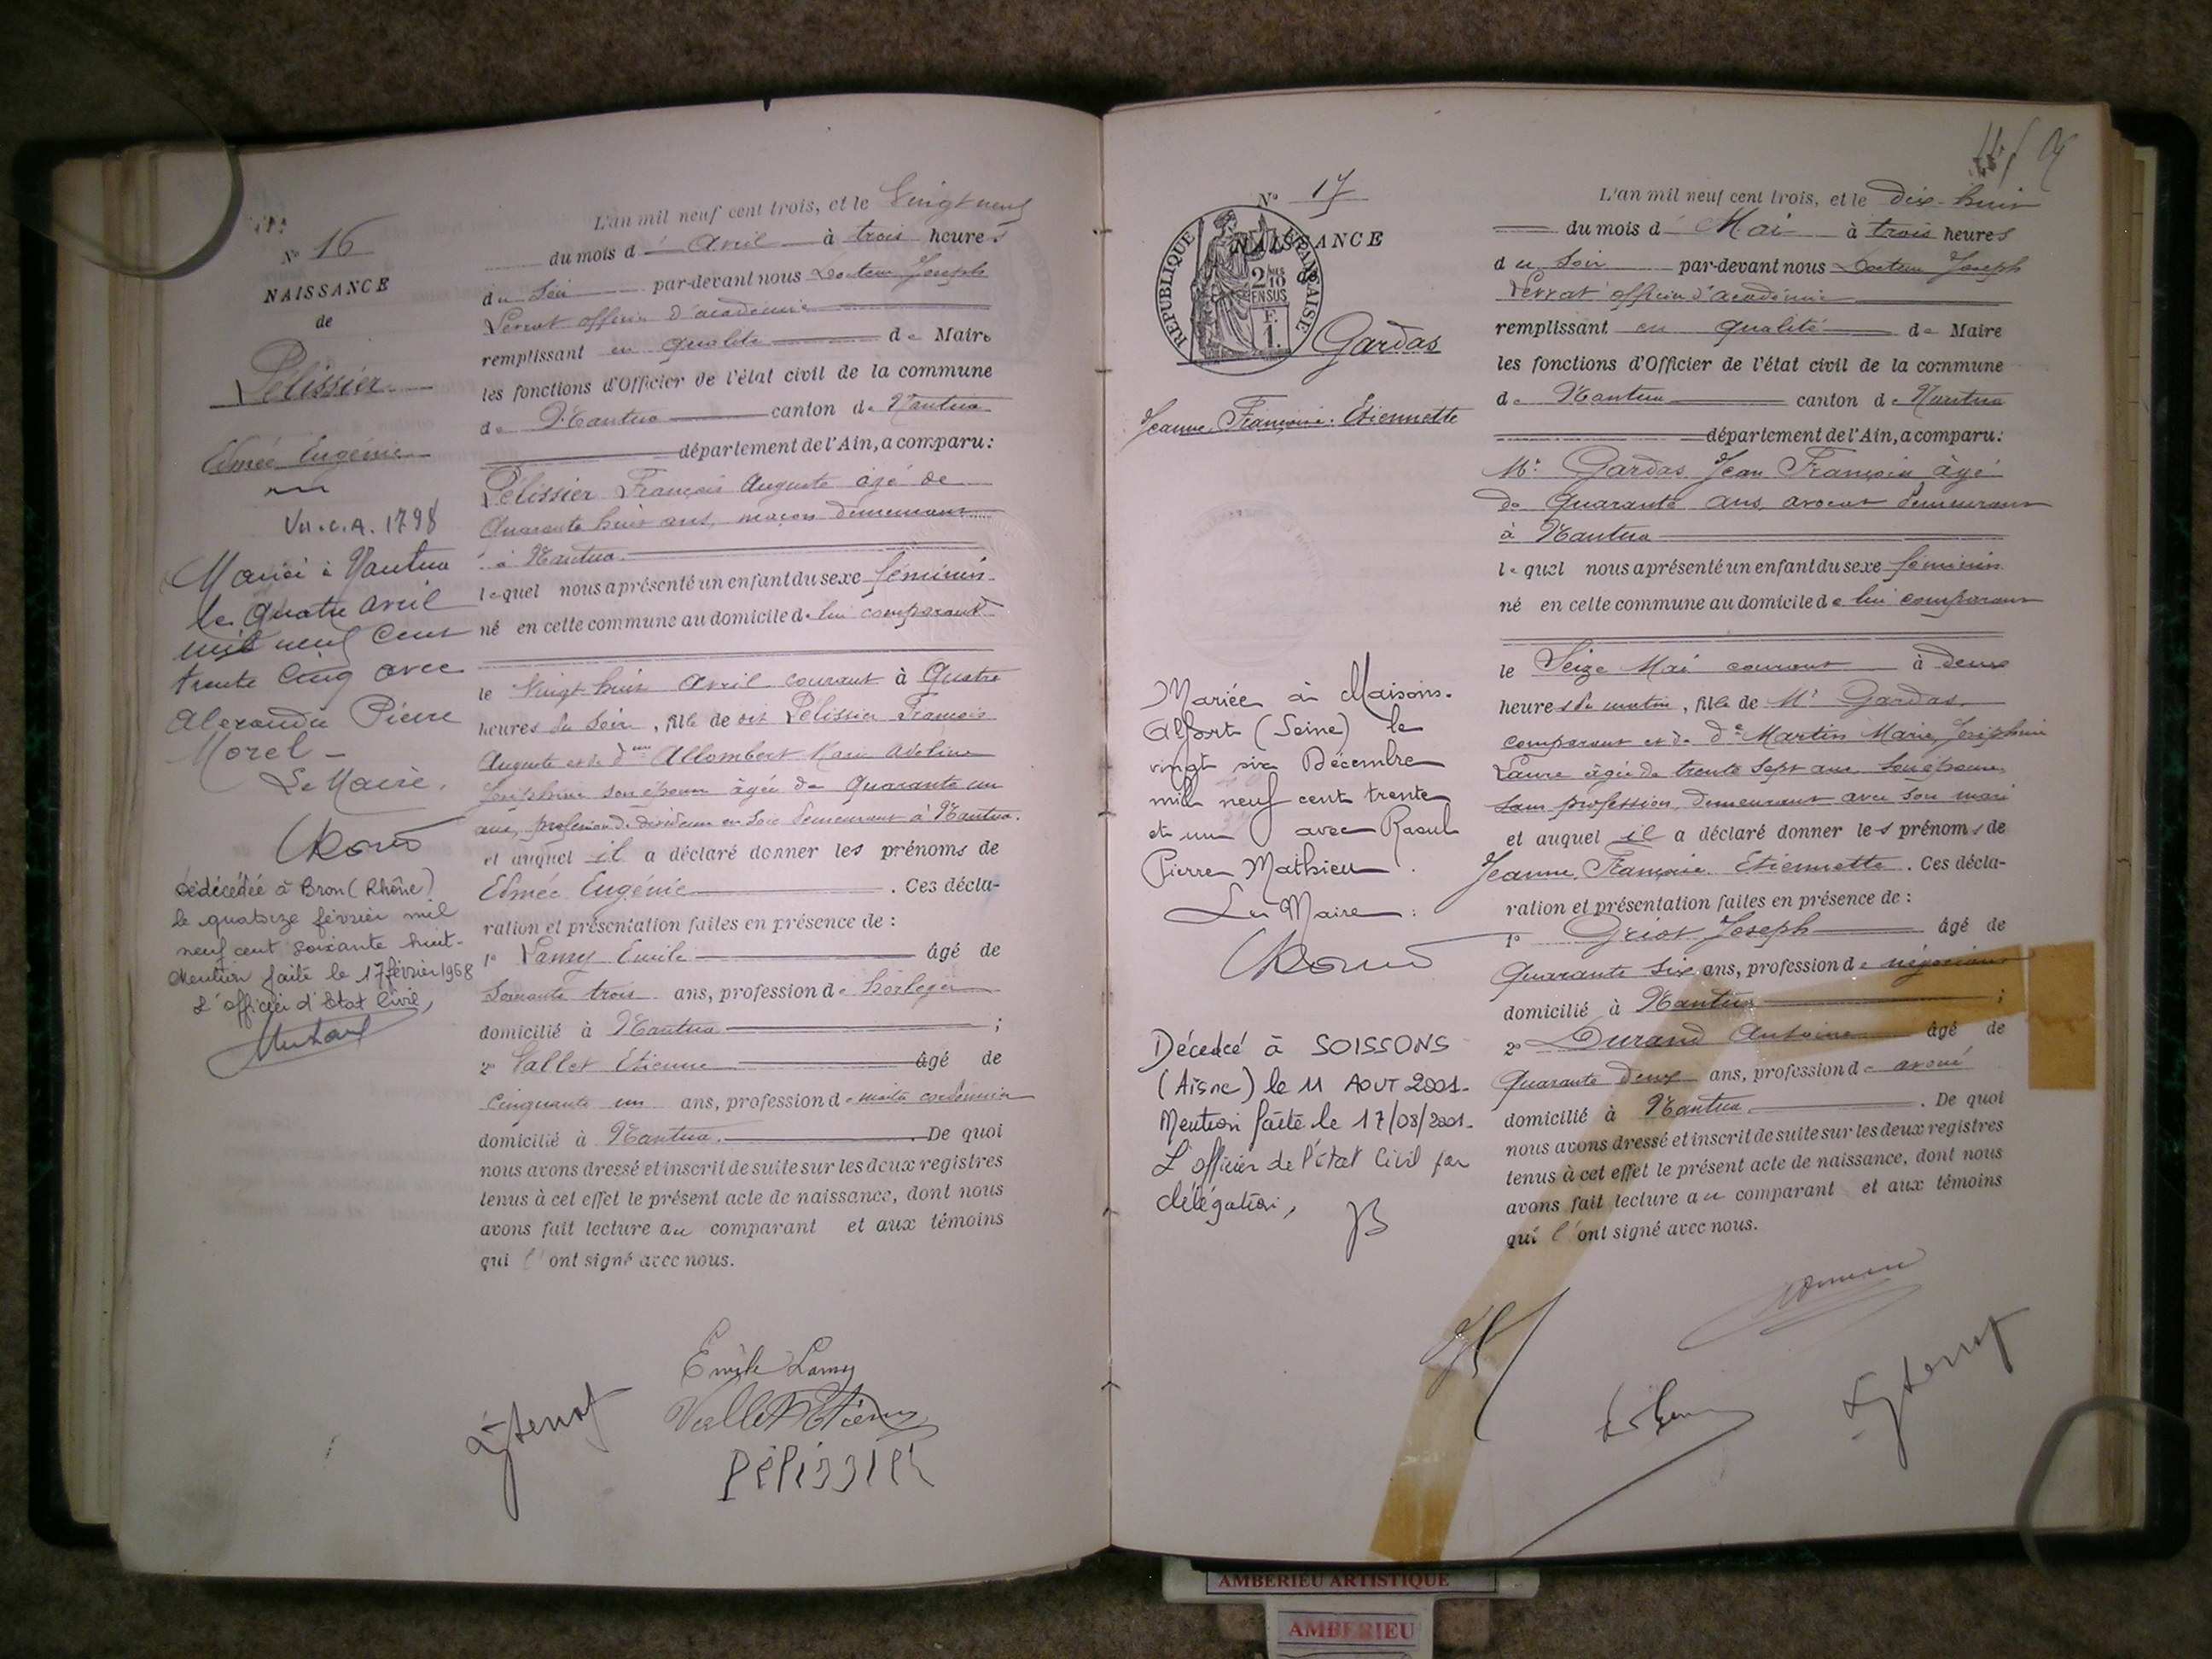 N° 16
NAISSANCE
de
Pélissier
Edmée Eugénie
Vu. c. A. 1798
Mariée à Nantua
le quatre avril
mil neuf cent
trente cinq avec
Alexandre Pierre
Morel
Le Maire,
décédée à Bron (Rhône)
le quatorze février mil
neuf cent soixante huit-
Mention faite le 17 février 1968
L'officier d'Etat Civil,
L'an mil neuf cent trois, et le Vingt neuf
du mois d' Avril à trois heures
du soir par-devant nous Docteur Joseph
officier d'académie
remplissant en qualité de Maire
les fonctions d'Officier de l'état civil de la commune
de Nantua canton de Nantua
département de l'Ain, a comparu :
Pélissier François Auguste âgé de
Quarante huit ans, maçon demeurant
à Nantua
lequel nous a présenté un enfant du sexe féminin
né en cette commune au domicile de lui comparant
le Vingt huit Avril courant à Quatre
heures du soir, fille de dit Pélissier François
Auguste et de dme Allombert Marie Adeline
Joséphine son épouse âgée de Quarante un
ans, profession de dévideuse en soie demeurant à Nantua.
et auquel il a déclaré donner les prénoms de
Edmée Eugénie . Ces décla-
ration et présentation faites en présence de :
1° Lamy Emile âgé de
Soixante trois ans, profession de horloger
domicilié à Nantua ;
2° Vallet Etienne âgé de
Cinquante un ans, profession de maître cordonnier
domicilié à Nantua. De quoi
nous avons dressé et inscrit de suite sur les deux registres
tenus à cet effet le présent acte de naissance, dont nous
avons fait lecture au comparant et aux témoins
qui l'ont signé avec nous.
Emile Lamy
Vallet Etienne
Pélissier
N° 17
NAISSANCE
de
RÉPUBLIQUE FRANÇAISE
2/10
EN SUS
F.
1.
Gardas
Jeanne, Françoise, Etiennette
Mariée à Maisons-
Alfort (Seine) le
vingt six Décembre
mil neuf cent trente
et un avec Raoul
Pierre Mathieu.
Le Maire :
Décedcé à SOISSONS
(Aisne) le 11 AOUT 2001-
Mention faite le 17/08/2001-
L'officier de l'état Civil par
délégation,
L'an mil neuf cent trois, et le dix-huit
du mois d Mai à trois heures
du soir par-devant nous Docteur Joseph
officier d'académie
remplissant en qualité de Maire
les fonctions d'Officier de l'état civil de la commune
de Nantua canton de Nantua
département de l'Ain, a comparu :
Mr. Gardas Jean François âgé
de Quarante ans, avocat demeurant
à Nantua
lequel nous a présenté un enfant du sexe féminin
né en cette commune au domicile de lui comparant
le Seize Mai courant à deux
heures du matin, fille de Mr Gardas,
comparant et de de Martin Marie, Joséphine
Laure âgée de trente sept ans son épouse,
sans profession, demeurant avec son mari
et auquel il a déclaré donner les prénoms de
Jeanne, Françoise, Etiennette. Ces décla-
ration et présentation faites en présence de :
1° Griot Joseph âgé de
Quarante six ans, profession de négociant
domicilié à Nantua ;
2° Durand Antoine âgé de
Quarante deux ans, profession de avoué
domicilié à Nantua . De quoi
nous avons dressé et inscrit de suite sur les deux registres
tenus à cet effet le présent acte de naissance, dont nous
avons fait lecture au comparant et aux témoins
qui l'ont signé avec nous.
AMBERIEU ARTISTIQUE
AMBERIEU